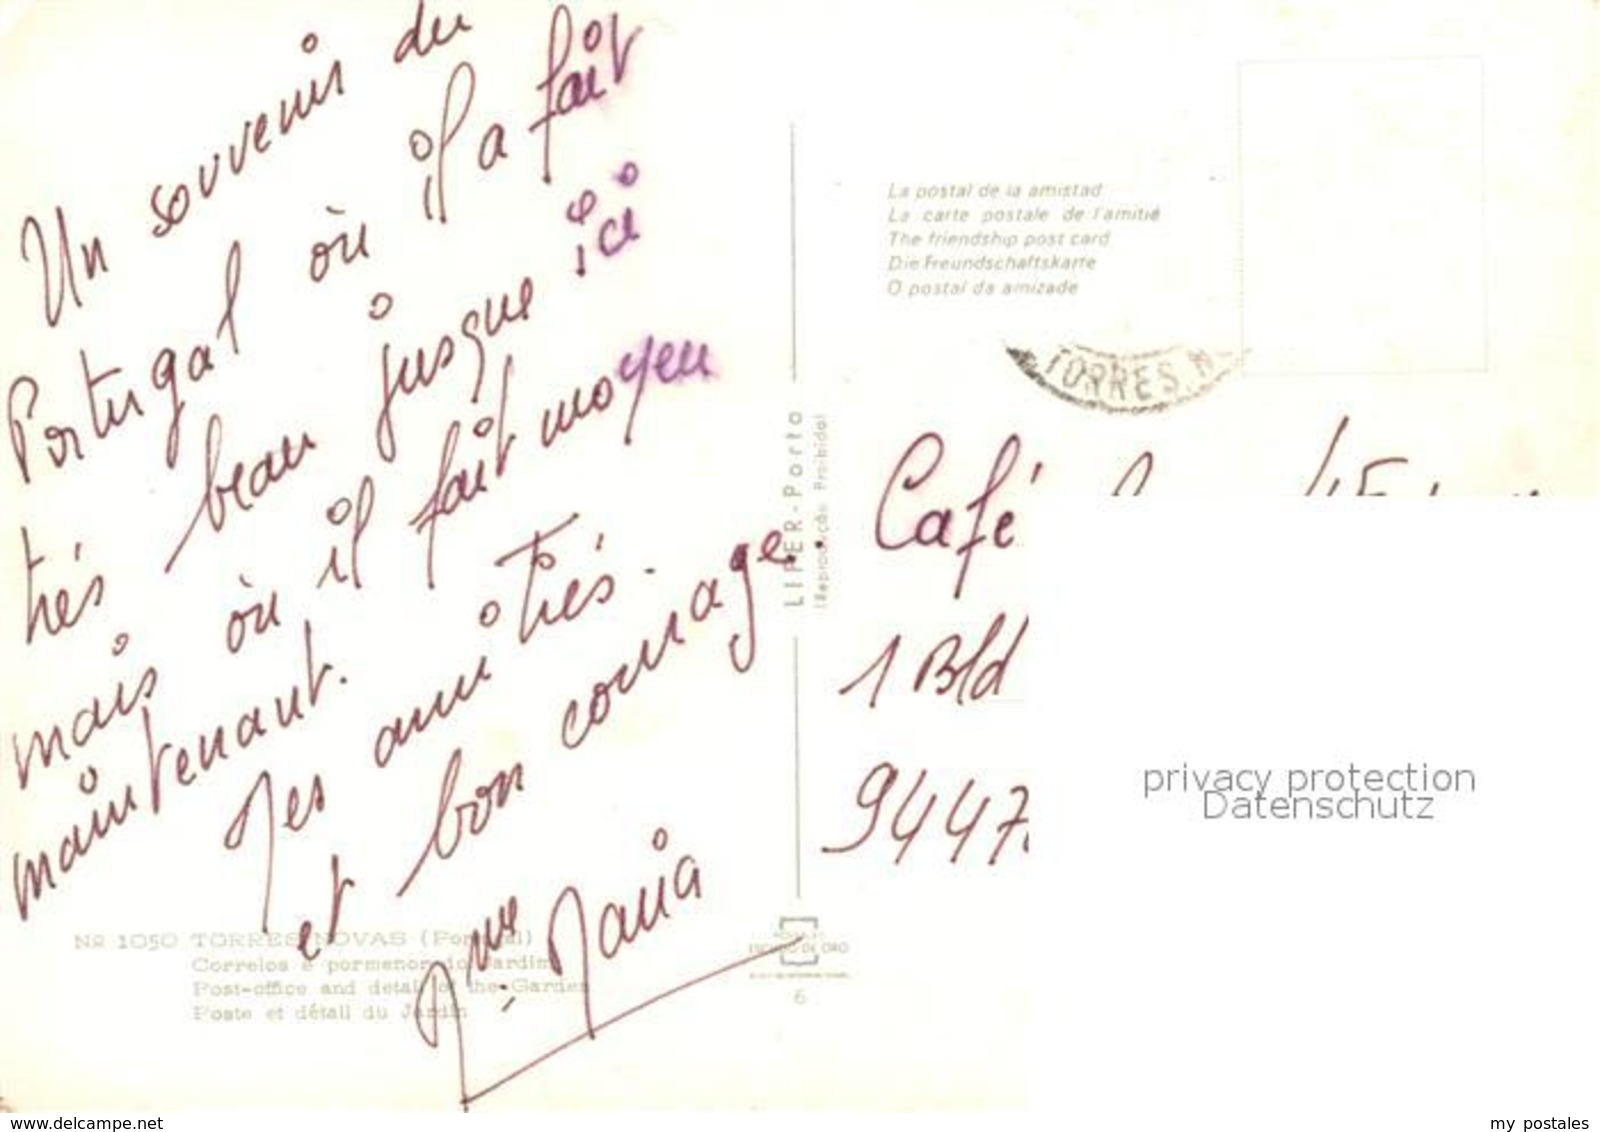 Un souvenir du
Portugal où il a fait
très beau jusque ici
mais où il fait moyen
maintenant.
Mes amitiés.
et bon courage.
Mme Maria
Nº 1050 TORRES NOVAS (Portugal)
Correios e pormenor do Jardim
Post-office and detail of the Garden
Poste et détail du Jardin
LIFER - Porto
(Reprodução Proibida)
ESCUDO DE ORO
6
La postal de la amistad
La carte postale de l'amitié
The friendship post card
Die Freundschaftskarte
O postal da amizade
TORRES N
Café
1 Bld
9447
privacy protection
Datenschutz
www.delcampe.net
my_postales